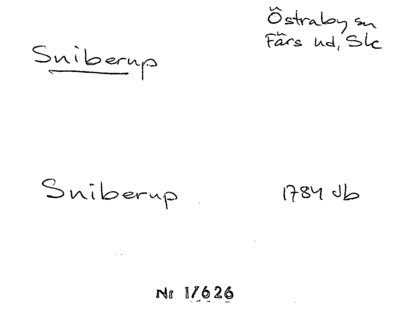 Sniberup
Östraby sn
Färs hd, Slc
Sniberup
1784 Jb
Nr 17626